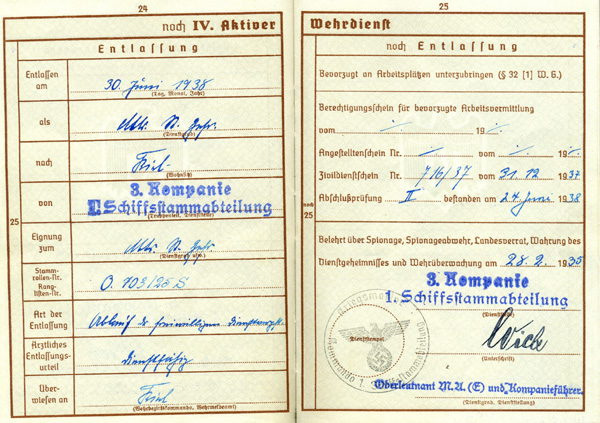 24
noch IV. Aktiver
Entlassung
Entlassen
am
30. Juni 1938
(Tag, Monat, Jahr)
als
Mtr. St. Gefr.
(Dienstgrad)
nach
Kiel
(Wohnsitz)
von
3. Kompanie
I. Schiffsstammabteilung
(Truppenteil, Dienststelle)
25
Eignung
zum
Mtr. St. Gefr.
(Dienstgrad usw.)
Stamm-
rollen-Nr.
Rang-
listen-Nr.
O. 703/25 S
Art der
Entlassung
Ablauf d. freiwilligen Dienstverpfl.
Ärztliches
Entlassungs-
urteil
dienstfähig
Über-
wiesen an
Kiel
(Wehrbezirkskommando, Wehrmeldeamt)
25
Wehrdienst
noch Entlassung
Bevorzugt an Arbeitsplätzen unterzubringen (§ 32 [1] W. G.)
Berechtigungsschein für bevorzugte Arbeitsvermittlung
vom 19
Angestelltenschein Nr. vom 19
Zivildienstschein Nr. 716/37 vom 31. 12. 1937
Abschlußprüfung II bestanden am 24. Juni 1938
noch
25
Belehrt über Spionage, Spionageabwehr, Landesverrat, Wahrung des
Dienstgeheimnisses und Wehrüberwachung am 28. 2. 1935
3. Kompanie
1. Schiffsstammabteilung
(Dienststelle)
Kriegsmarine
Kommando 1. Schiffsstammabteilung
Dienststempel
(Unterschrift)
Oberleutnant M.A. (E) und Kompanieführer.
(Dienstgrad, Dienststellung)